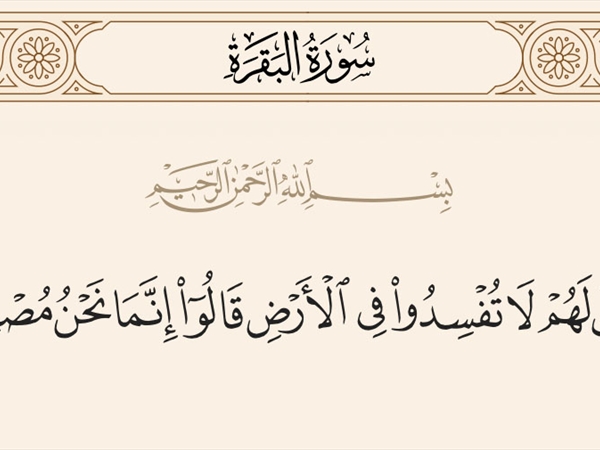 سُورَةُ البَقَرَةِ
بِسْمِ ٱللَّهِ ٱلرَّحْمَٰنِ ٱلرَّحِيمِ
لَهُمْ لَا تُفْسِدُوا۟ فِى ٱلْأَرْضِ قَالُوٓا۟ إِنَّمَا نَحْنُ